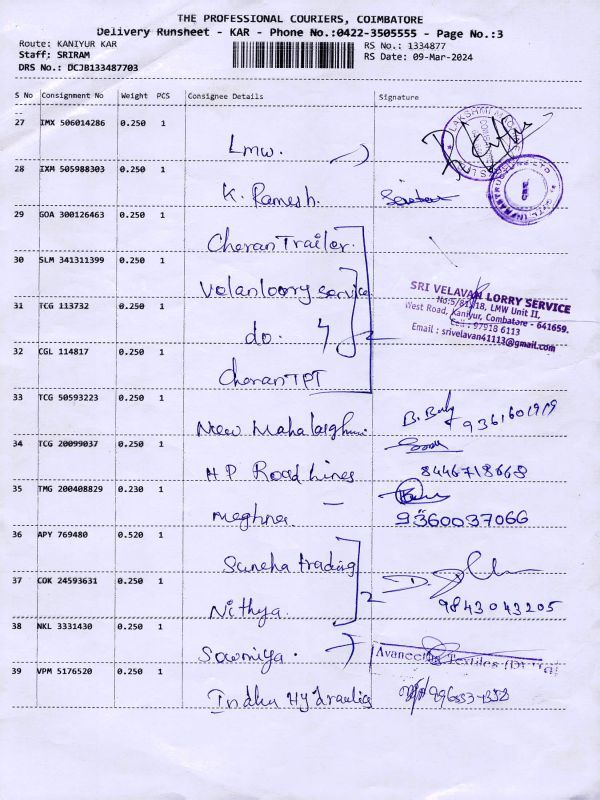 THE PROFESSIONAL COURIERS, COIMBATORE
Delivery Runsheet - KAR - Phone No.:0422-3505555 - Page No.:3
Route: KANIYUR KAR
RS No.: 1334877
Staff: SRIRAM
RS Date: 09-Mar-2024
DRS No.: DCJB133487703
S No Consignment No Weight PCS Consignee Details Signature
27 IMX 506014286 0.250 1
Lmw.
28 IXM 505988303 0.250 1
K. Ramesh.
29 GOA 300126463 0.250 1
Cheran Trailer.
30 SLM 341311399 0.250 1
Velan loory service
SRI VELAVAN LORRY SERVICE
LMW Unit II,
West Road, Kaniyur, Combatore - 641659.
Cell : 97918 6113
Email : srivelavan41113@gmail.com
31 TCG 113732 0.250 1
do. 4 2
32 CGL 114817 0.250 1
Cheran TPT
33 TCG 50593223 0.250 1
New Mahalakshmi
34 TCG 20099037 0.250 1
H P Road Lines 8446718668
35 TMG 200408829 0.230 1
Meghna. 9360037066
36 APY 769480 0.520 1
Suneha trading
37 COK 24593631 0.250 1
Nithya. 2 9843043205
38 NKL 3331430 0.250 1
Sowmiya.
39 VPM 5176520 0.250 1
Indhu Hydraulics